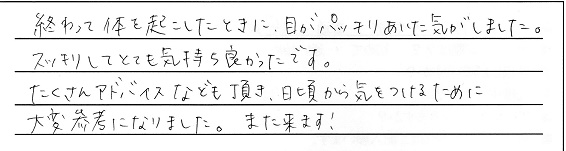 終わって体を起こしたときに、目がパッチリあいた気がしました。
スッキリしてとても気持ち良かったです。
たくさんアドバイスなども頂き、日頃から気をつけるために
大変参考になりました。また来ます!